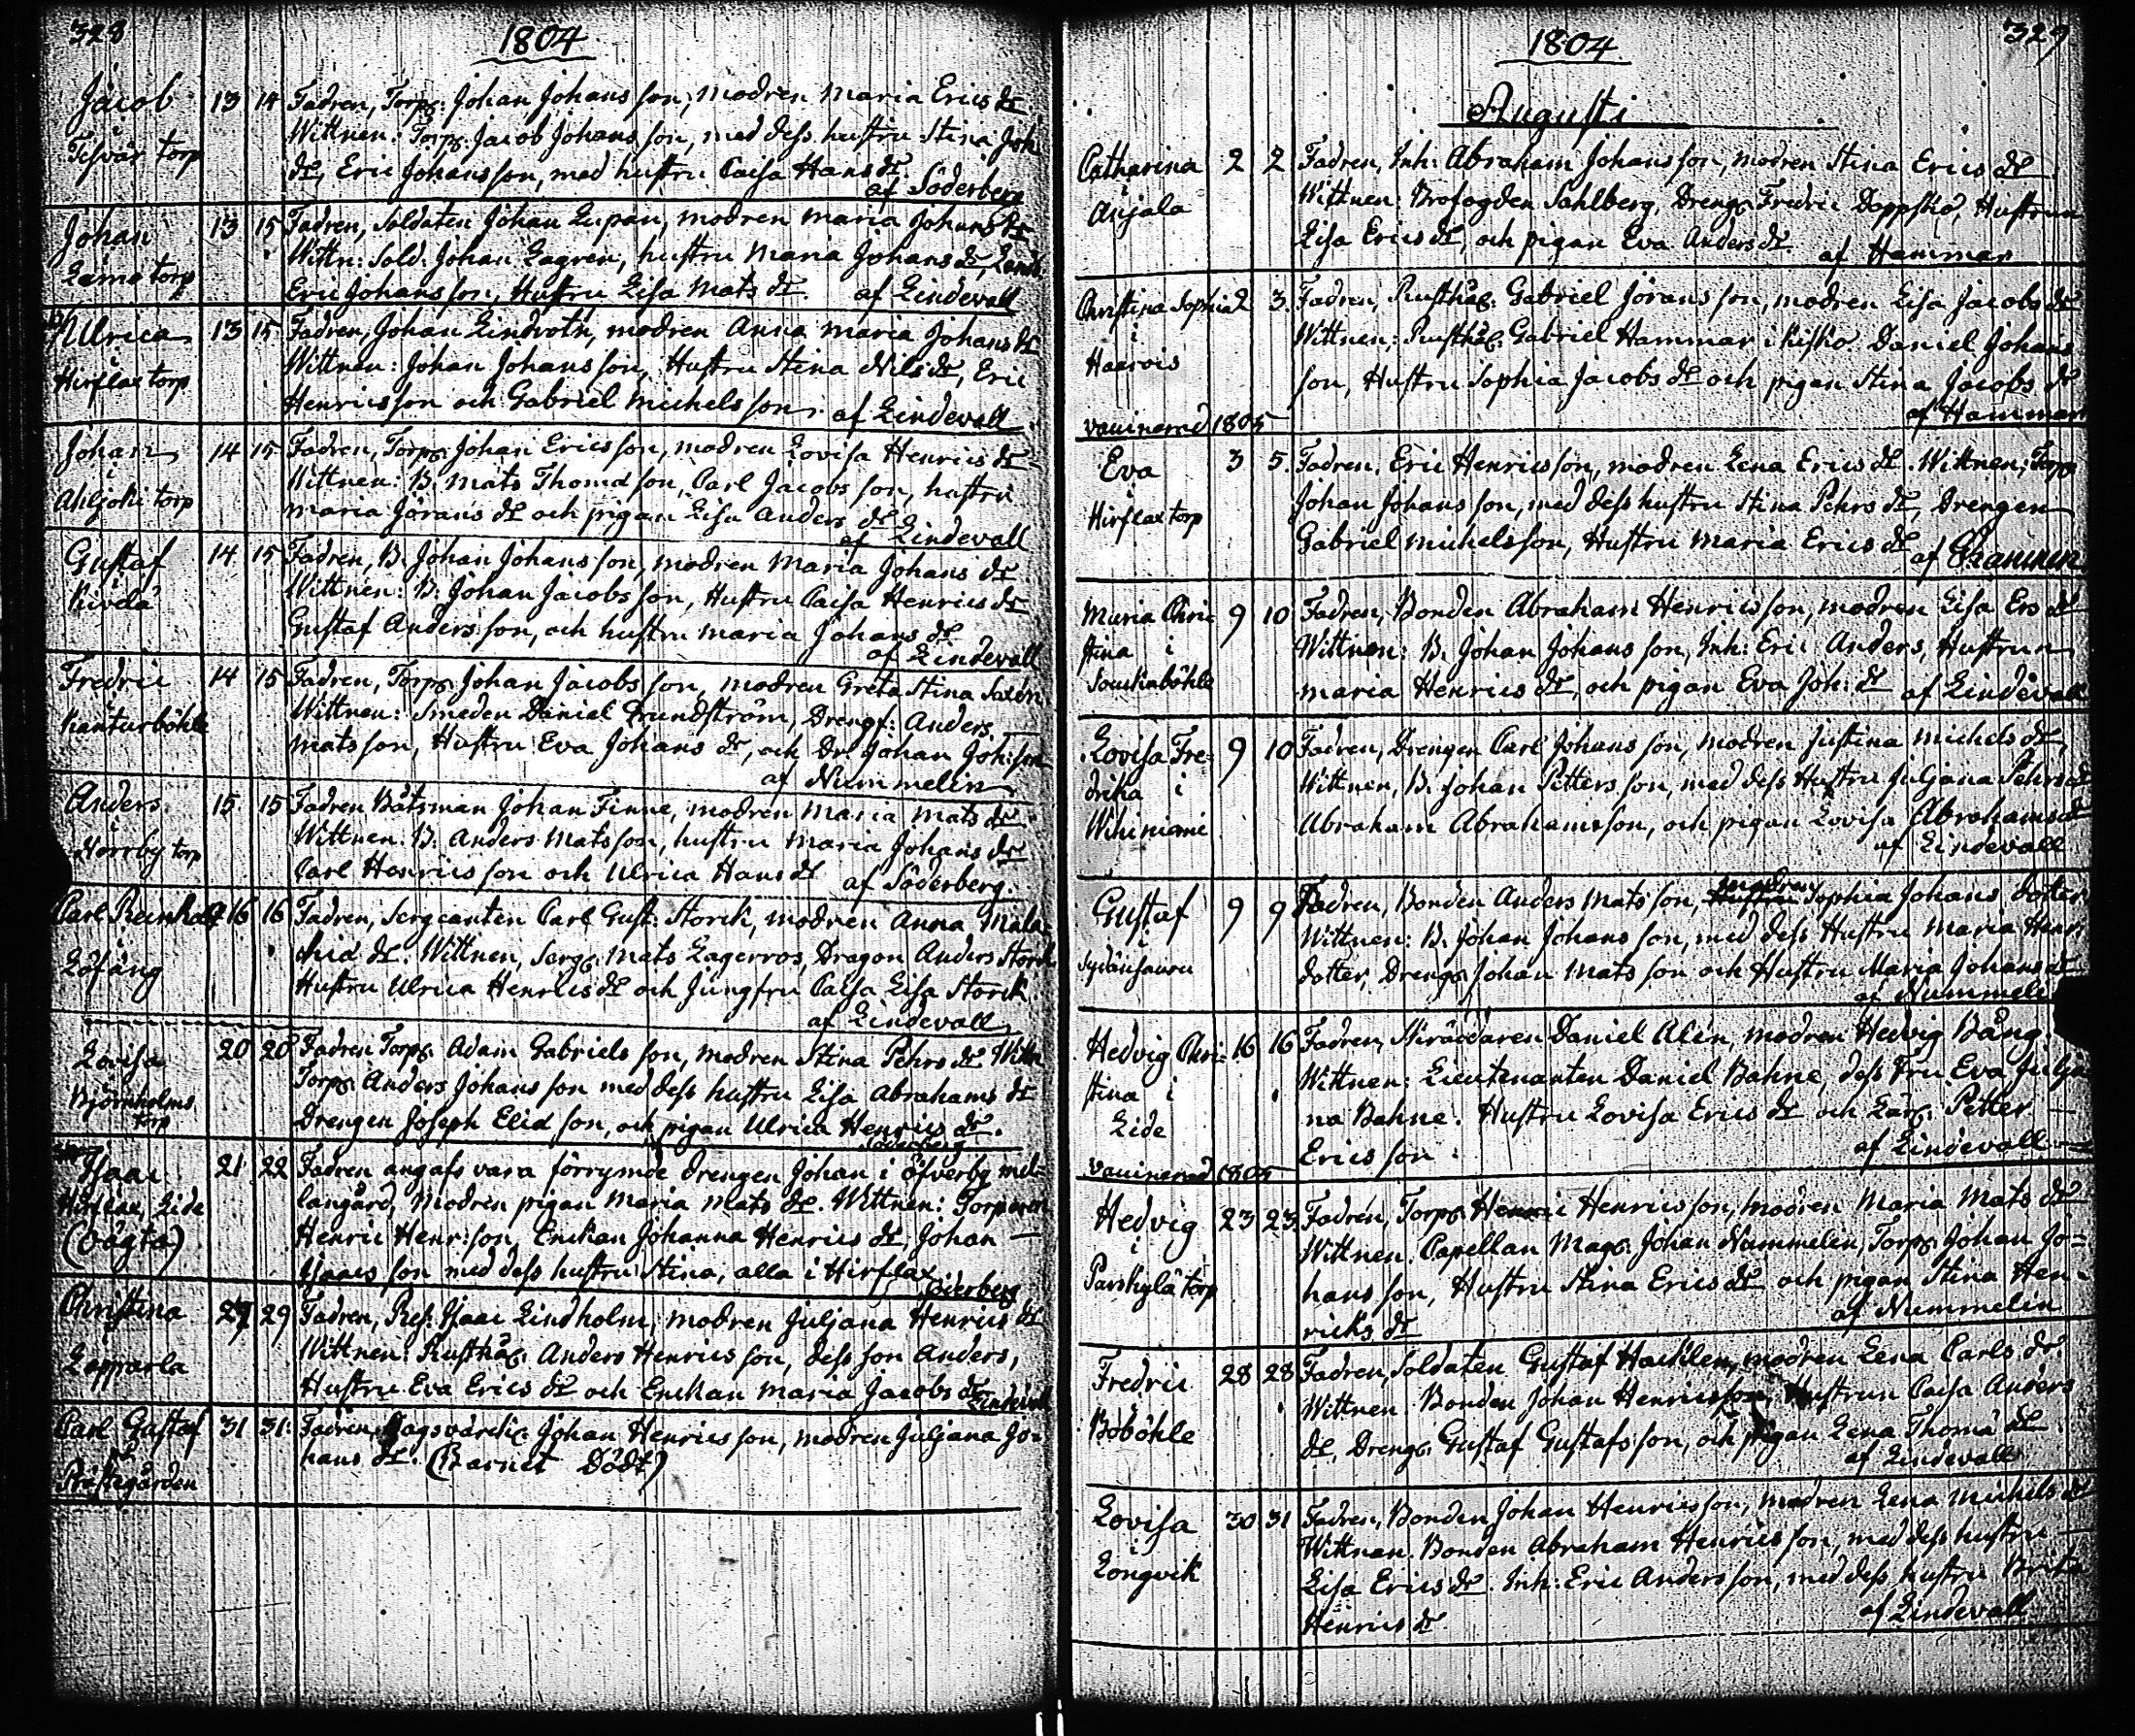 328
1804
Jacob 13 14 Fadren, Torp: Johan Johans son, modren Maria Erics dr
i Wittnen: Torp: Jacob Johans son, med dess hustru Stina Joh
torp dr, Eric Johansson, med hustru Caisa Hans dr.
af Söderberg
Johan 13 15 Fadren, Soldaten Johan Lupan, modren Maria Johans dr
i Wittn: Sold: Johan Lagren, hustru Maria Johans dr,
torp Eric Johans son, Hustru Lisa Mats dr. af Lindevall
Ulrica 13 15 Fadren, Johan Lindroth, modren Anna Maria Johans dr
i Wittnen: Johan Johans son, Hustru Stina Nils dr, Eric
Hirflax torp Henrics son och Gabriel Michels son. af Lindevall
Johan 14 15 Fadren, Torp: Johan Ericsson, modren Lovisa Henrics dr
i Wittnen: B. Mats Thomas son, Carl Jacobs son, hustru
Ahljoki torp Maria Jörans dr och pigan Lisa Anders dr
af Lindevall
Gustaf 14 15 Fadren, B. Johan Johans son, modren Maria Johans dr
i Wittnen: B: Johan Jacobs son, Hustru Caisa Henrics dr
Gustaf Anders son, och hustru Maria Johans dr
af Lindevall
Fredric 14 15 Fadren, Torp: Johan Jacobs son, modren Greta Stina Saxén
i Wittnen: Smeden Daniel Grundström, Dreng: Anders
Mats son, Hustru Eva Johans dr, och Dr. Johan Joh: son
af Nummelin
Anders 15 15 Fadren Båtsman Johan Finne, modren Maria Mats dr
i Wittnen: B: Anders Mats son, hustru Maria Johans dr
Norrby torp Carl Henrics son och Ulrica Hans dr af Söderberg.
Carl Reinhold 16 16 Fadren, Sergeanten Carl Gust: Storck, modren Anna Mala-
i chia dr. Wittnen, Serg: Mats Lagerros, Dragon Anders Storck
Löfäng Hustru Ulrica Henrics dr och Jungfru Caisa Lisa Storck
af Lindevall
Lovisa 20 20 Fadren Torp: Adam Gabriels son, modren Stina Pehrs dr Wittn
i Torp: Anders Johans son med dess hustru Lisa Abrahams dr
Björnholms torp Drengen Joseph Elias son, och pigan Ulrica Henrics dr.
Söderberg
Isaac 21 22 Fadren angafs vara förrymde Drengen Johan i Öfverby mel-
Hirflax, Lide langård, Modren pigan Maria Mats dr. Wittnen: Torparen
(Oägta) Henric Henr: son, Enkan Johanna Henrics dr, Johan
Isaacs son med dess hustru Stina, alla i Hirflax
Söderberg
Christina 27 29 Fadren, Isaac Lindholm, modren Juljana Henrics dr
i Wittnen: Rusthål: Anders Henrics son, dess son Anders,
Lapparla Hustru Eva Erics dr och Enckan Maria Jacobs dr
Lindevall
Carl Gustaf 31 31. Fadren, Dagsvärdk: Johan Henrics son, modren Juljana Jo-
i hans dr. (Barnet Dödt)
Prästgården
329
1804
Augusti
Catharina 2 2 Fadren, Inh: Abraham Johans son, modren Stina Erics dr
i Wittnen: Brofogden Sahlberg, Dreng: Fredric Doppsko, Hustrun
Anjala Lisa Erics dr, och pigan Eva Anders dr
af Hammar
Christina Sophia 2 3. Fadren, Rusthål: Gabriel Jörans son, modren Lisa Jacobs dr
i Wittnen: Rusthål: Gabriel Hammar i Kisko. Daniel Johans
Haarois son, Hustru Sophia Jacobs dr och pigan Stina Jacobs dr
af Hammar
vaccinerad 1805
Eva 3 5. Fadren, Eric Henricsson, modren Lena Erics dr. Wittnen: Torp:
i Johan Johans son, med dess hustru Stina Pehrs dr, Drengen
Hirflax torp Gabriel Michelsson, Hustru Maria Erics dr
Maria Chri- 9 10 Fadren, Bonden Abraham Henrics son, modren Lisa Ers dr
stina i Wittnen: B. Johan Johans son, Inh: Eric Anders, Hustrun
Maria Henrics dr, och pigan Eva Joh: dr af Lindevall
Lovisa Fre- 9 10 Fadren, Drengen Carl Johans son, modren Justina Michels dr,
drika i Wittnen, B. Johan Petters son, med dess Hustru Juljana Pehrs dr
Wihiniemi Abraham Abrahamsson, och pigan Lovisa Abrahams dr
af Lindevall
Gustaf 9 9 Fadren, Bonden Anders Mats son, modren Sophia Johans dotter.
i Wittnen: B. Johan Johans son, med dess Hustru Maria Henr:
dotter, Dreng: Johan Mats son och Hustru Maria Johans dr
af Nummelin
Hedvig Chri- 16 16 Fadren, Skräddaren Daniel Alén, modren Hedvig Bång.
stina i Wittnen: Lieutenanten Daniel Bahne, dess Fru Eva Julja-
Lide na Bahne. Hustru Lovisa Erics dr och Lär: Petter
Erics son. af Lindevall
vaccinerad 1805
Hedvig 23 23. Fadren, Torp: Henric Henrics son, modren Maria Mats dr
i Wittnen. Capellan Mag: Johan Nummelin, Torp: Johan Jo-
Parskylä torp hans son, Hustru Stina Erics dr och pigan Stina Hen-
ricks dr af Nummelin
Fredric 28 28 Fadren, Soldaten Gustaf Hacklen, modren Lena Carls dr.
i Wittnen Bonden Johan Henricsson, Hustrun Caisa Anders
Boböhle dr, Dreng: Gustaf Gustafs son, och pigan Lena Thomæ dr
af Lindevall
Lovisa 30 31 Fadren, Bonden Johan Henricsson, modren Lena Michels dr
i Wittnen. Bonden Abraham Henrics son, med dess hustru
Långvik Lisa Erics dr. Inh: Eric Anders son, med dess hustru Brita
Henrics dr af Lindevall